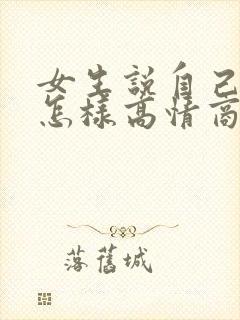 女生說自己
怎樣高情商
落舊城